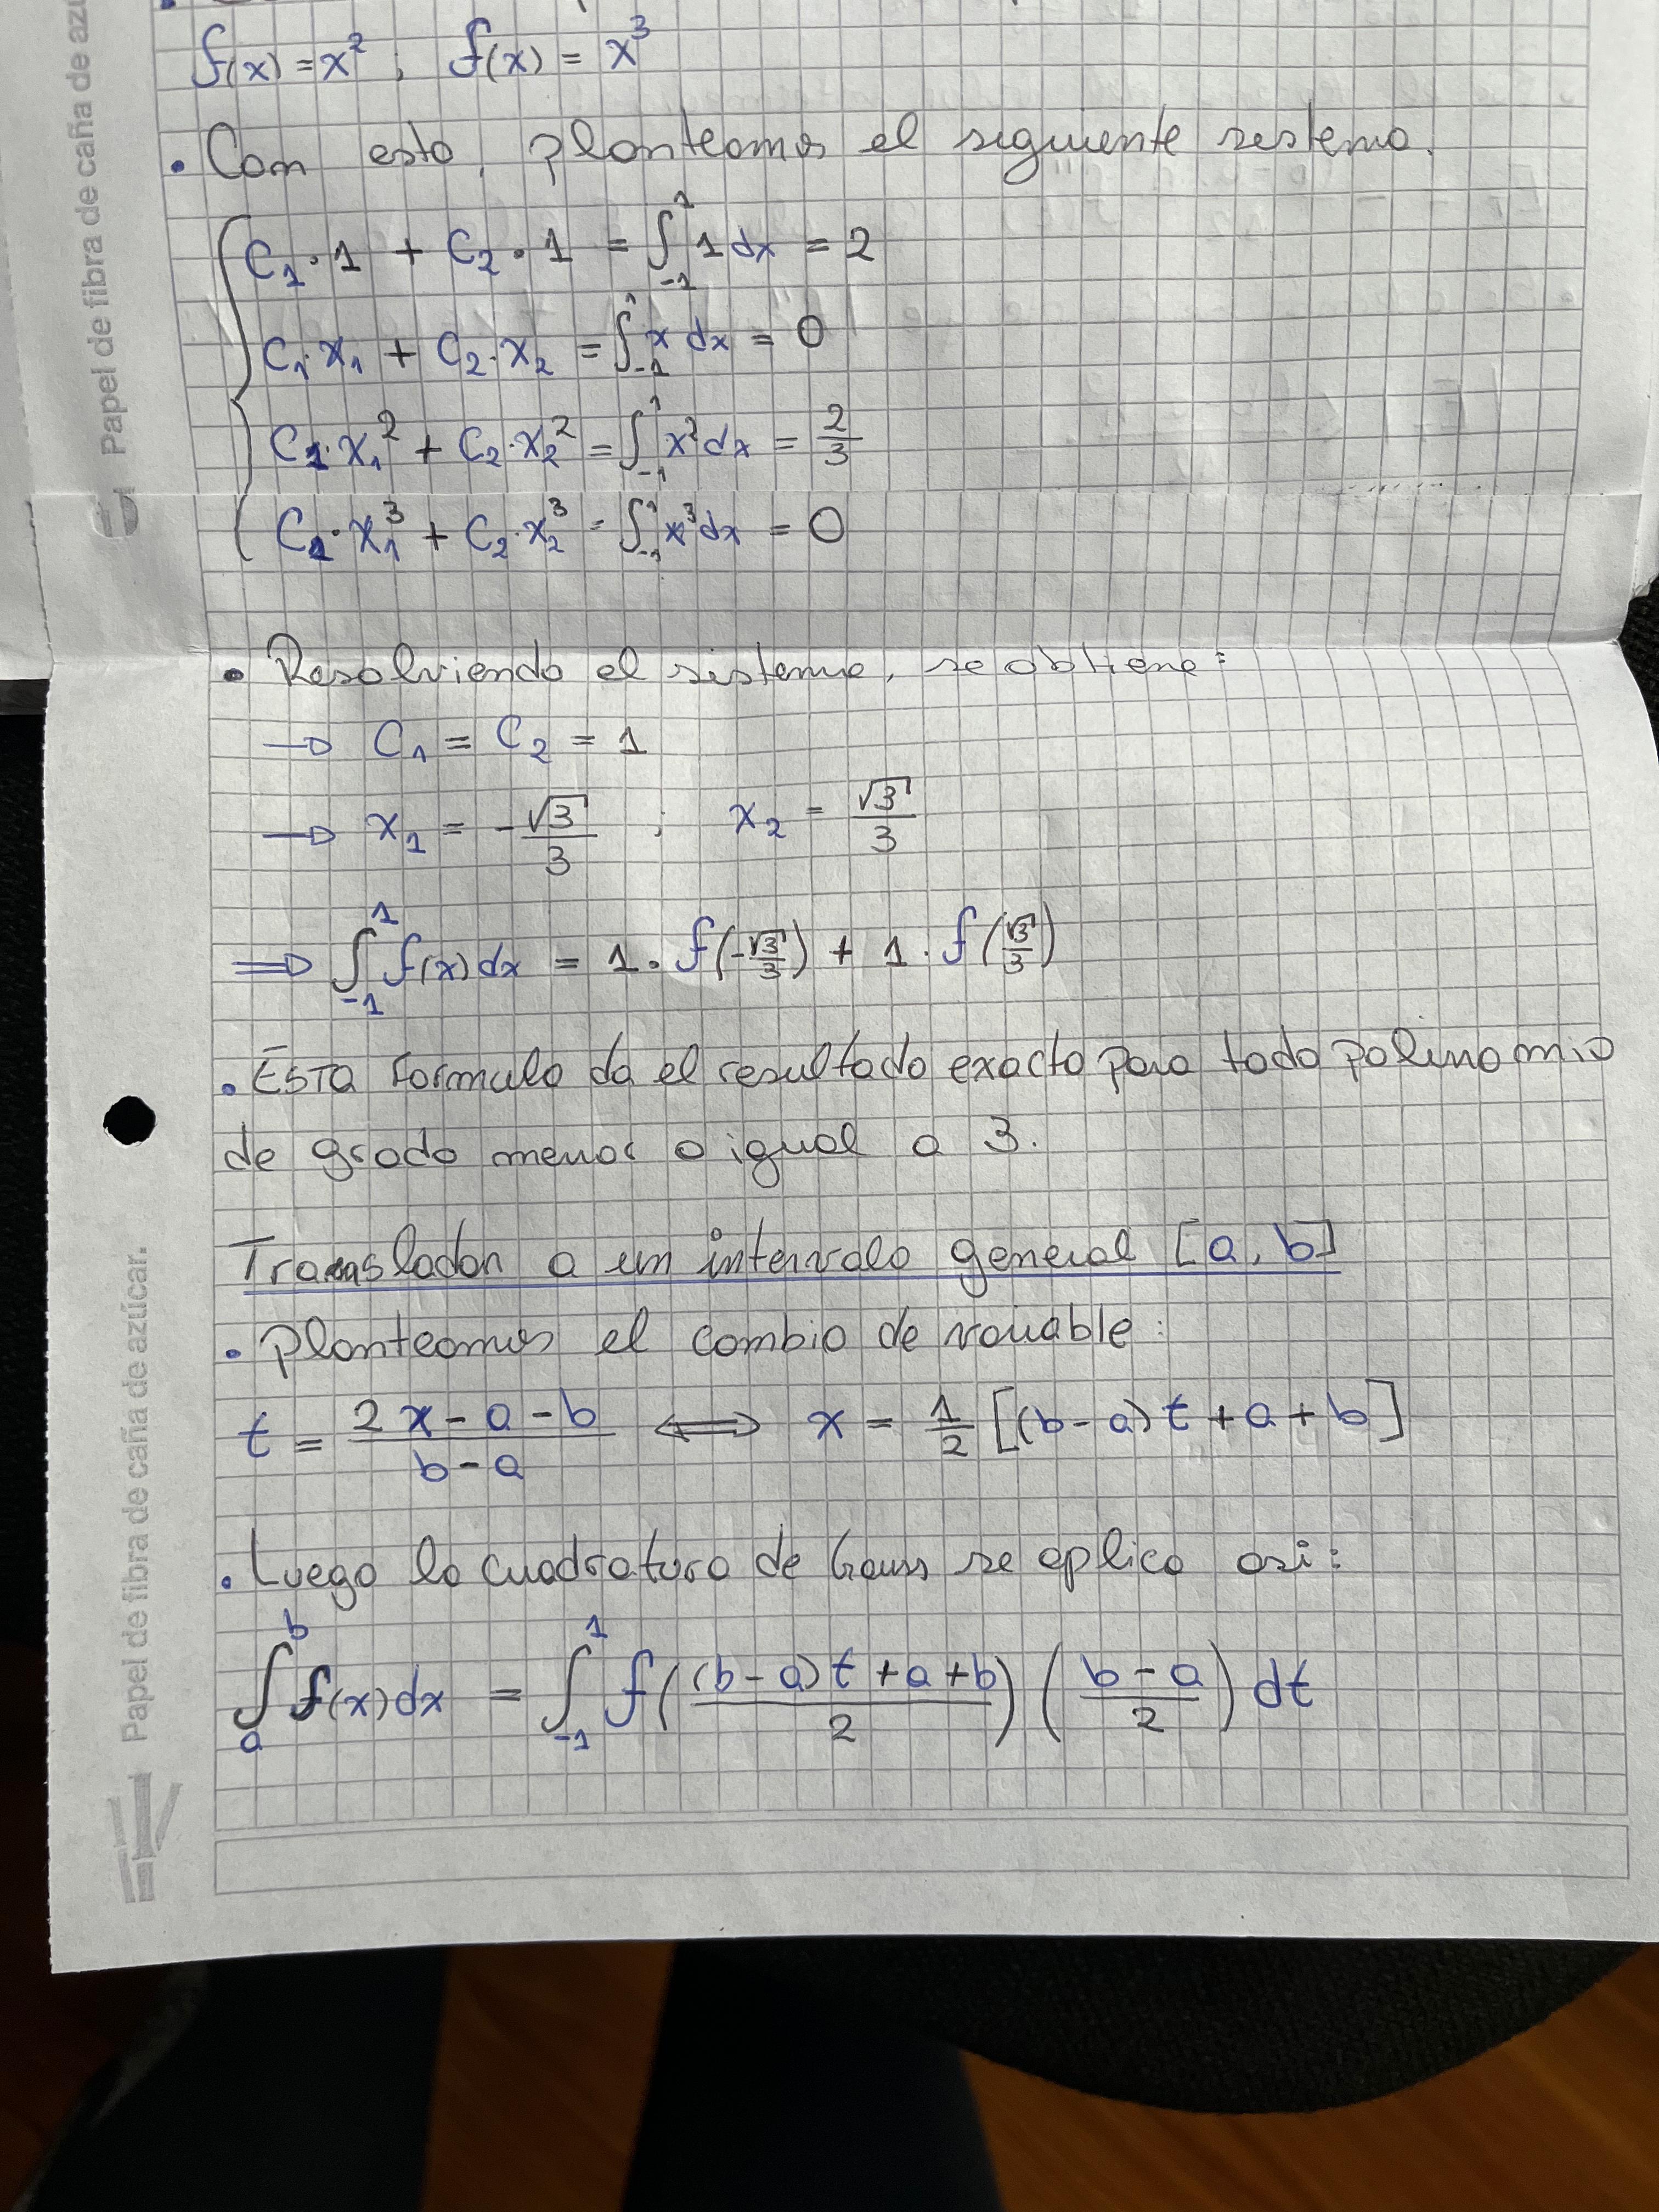 f(x) = x² ; f(x) = x³
• Con esto, planteamos el siguiente sistema.
C₁ · 1 + C₂ · 1 = ∫₋₁¹ 1 dx = 2
C₁ · x₁ + C₂ · x₂ = ∫₋₁¹ x dx = 0
C₁ · x₁² + C₂ · x₂² = ∫₋₁¹ x² dx = 2/3
C₁ · x₁³ + C₂ · x₂³ = ∫₋₁¹ x³ dx = 0
• Resolviendo el sistema, se obtiene:
→ C₁ = C₂ = 1
→ x₁ = -√3/3 ; x₂ = √3/3
⇒ ∫₋₁¹ f(x) dx = 1 · f(-√3/3) + 1 · f(√3/3)
• Esta formula da el resultado exacto para todo polinomio
de grado menor o igual a 3.
Trasladar a un intervalo general [a, b]
• Planteamos el cambio de variable:
t = (2x - a - b)/(b - a) ⟺ x = 1/2 [(b - a) t + a + b]
• Luego la cuadratura de Gauss se aplica asi:
∫ₐᵇ f(x) dx = ∫₋₁¹ f(((b - a) t + a + b)/2) ((b - a)/2) dt
Papel de fibra de caña de azú
Papel de fibra de caña de azúcar.